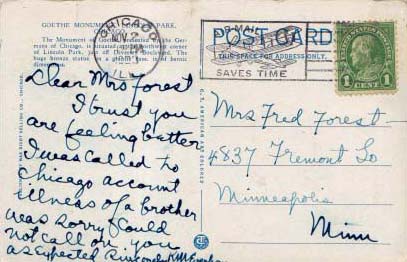 GOETHE MONUMENT, PARK.
The Monument of Goethe, presented by the Germans
of Chicago, is situated near the corner
of Lincoln Park, just off Diversey Boulevard. The
huge bronze statue of heroic
dimensions.
CHICAGO
NOV 2
ILL
AIR MAIL
SAVES TIME
POST CARD
THIS SPACE FOR ADDRESS ONLY.
UNITED STATES POSTAGE
1 CENT 1
Dear Mrs Forest
I trust you
are feeling better
I was called to
Chicago account
illness of a brother
was sorry I could
not call on you
as expected Sincerely
C. T. AMERICAN ART COLORED
Mrs Fred Forest
4837 Fremont So
Minneapolis
Minn